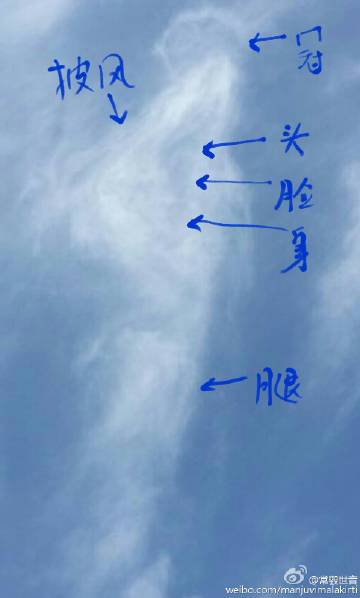 冠
披风
头
脸
身
腿
@常毁世音
weibo.com/manjuvimalakirti